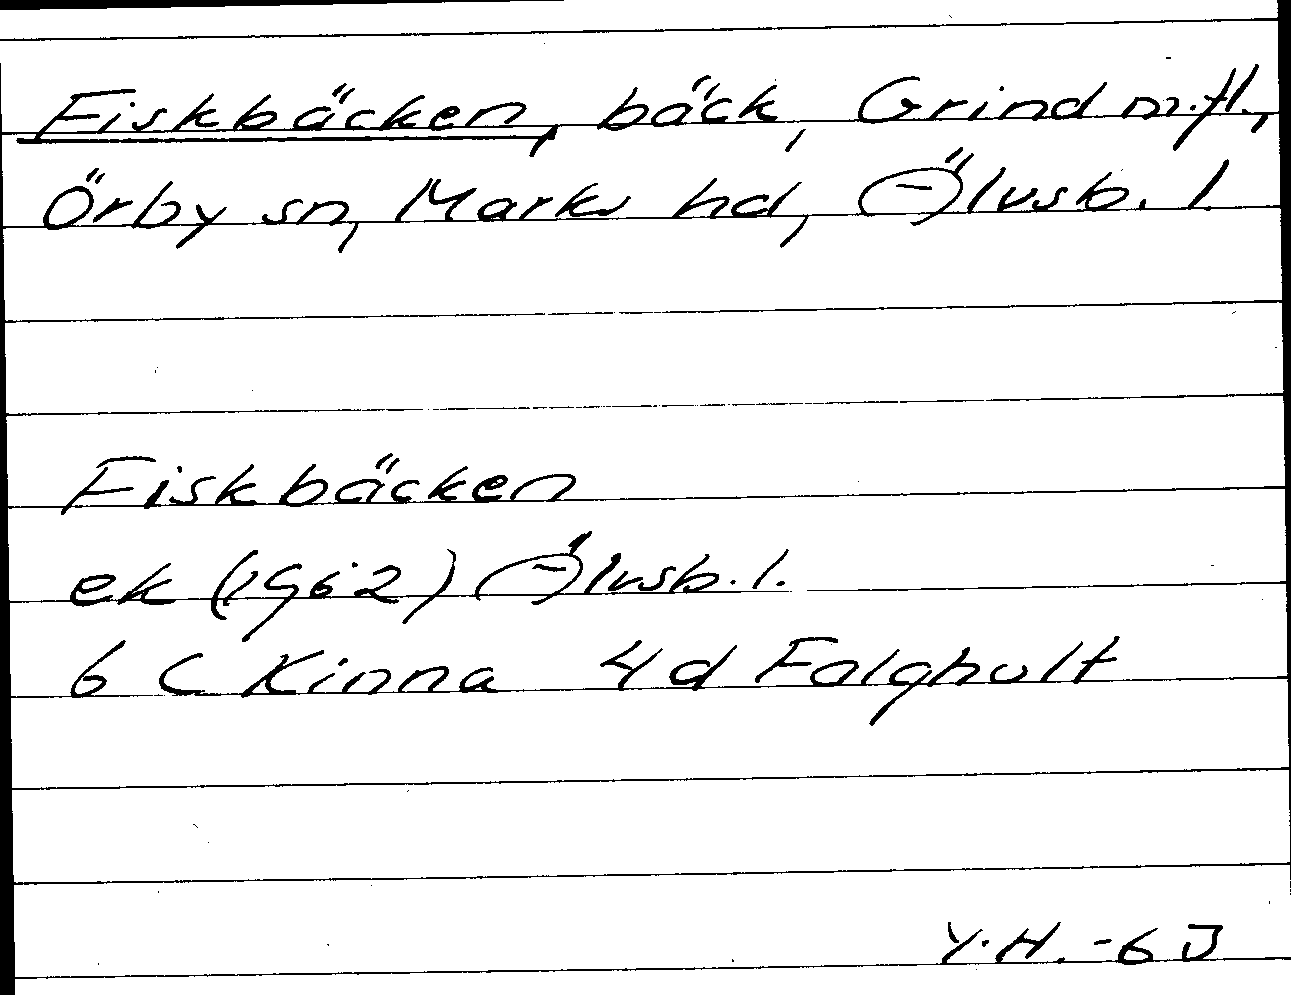 Fiskbäcken, bäck, Grind m.fl.,
Örby sn, Marks hd, Älvsb. l.
Fiskbäcken
ek (1962) Älvsb. l.
6 C Kinna 4 d Falghult
Y.H. -63